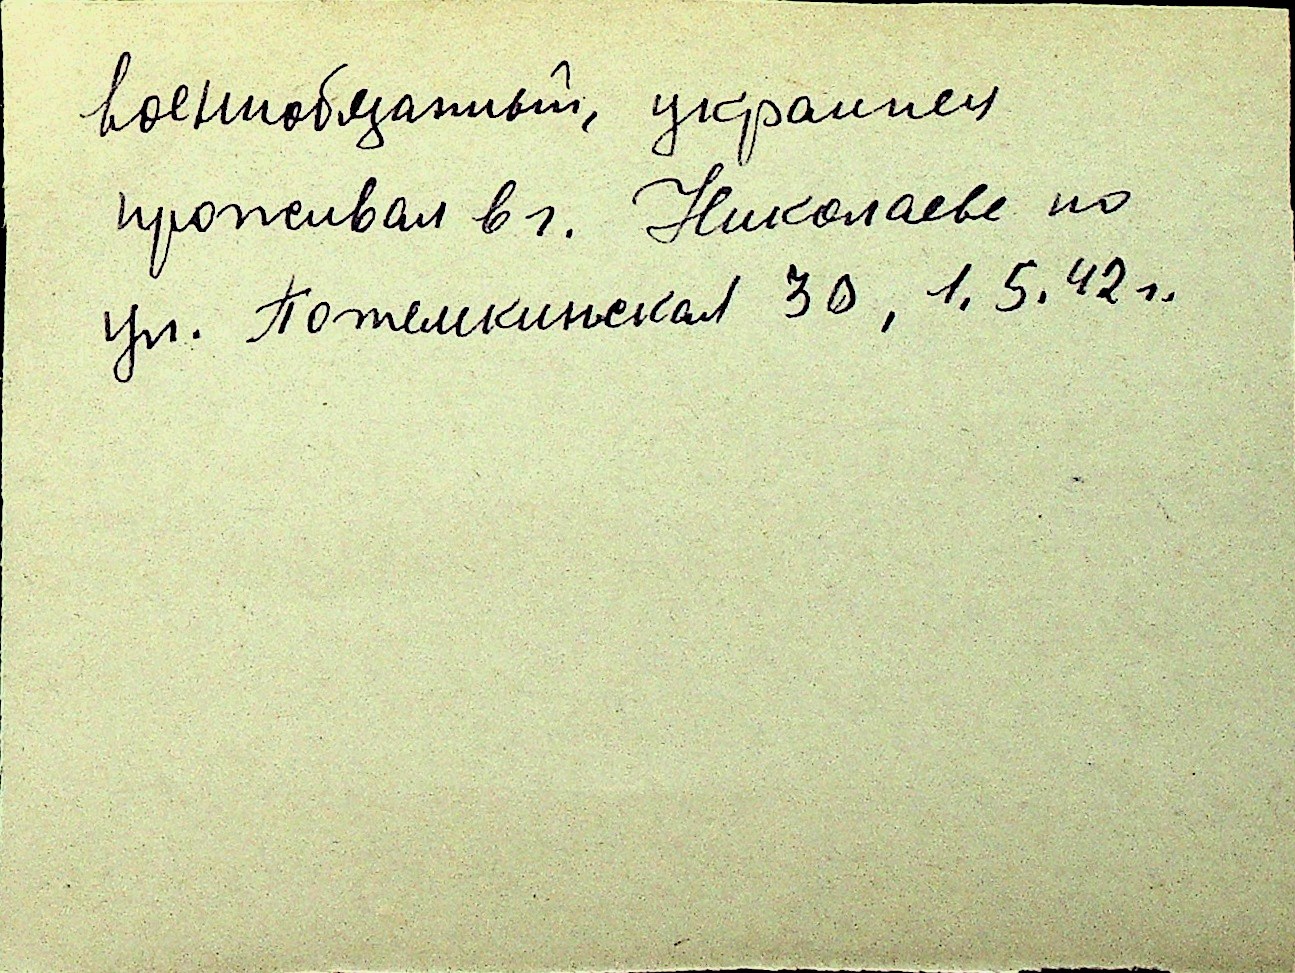 военнобязанный, украинец
проживал в г. Николаеве по
ул. Потемкинская 30, 1.5.42 г.